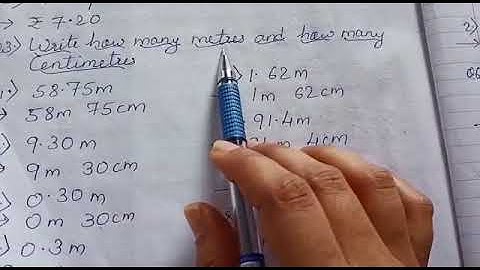 → ₹ 7.20
Q3:) Write how many metres and how many
Centimetres
1.) 58.75m
→ 58m 75cm
9.30m
→ 9m 30cm
0.30m
→ 0m 30cm
0.3m
1.62m
1m 62cm
91.4m
4cm
2)